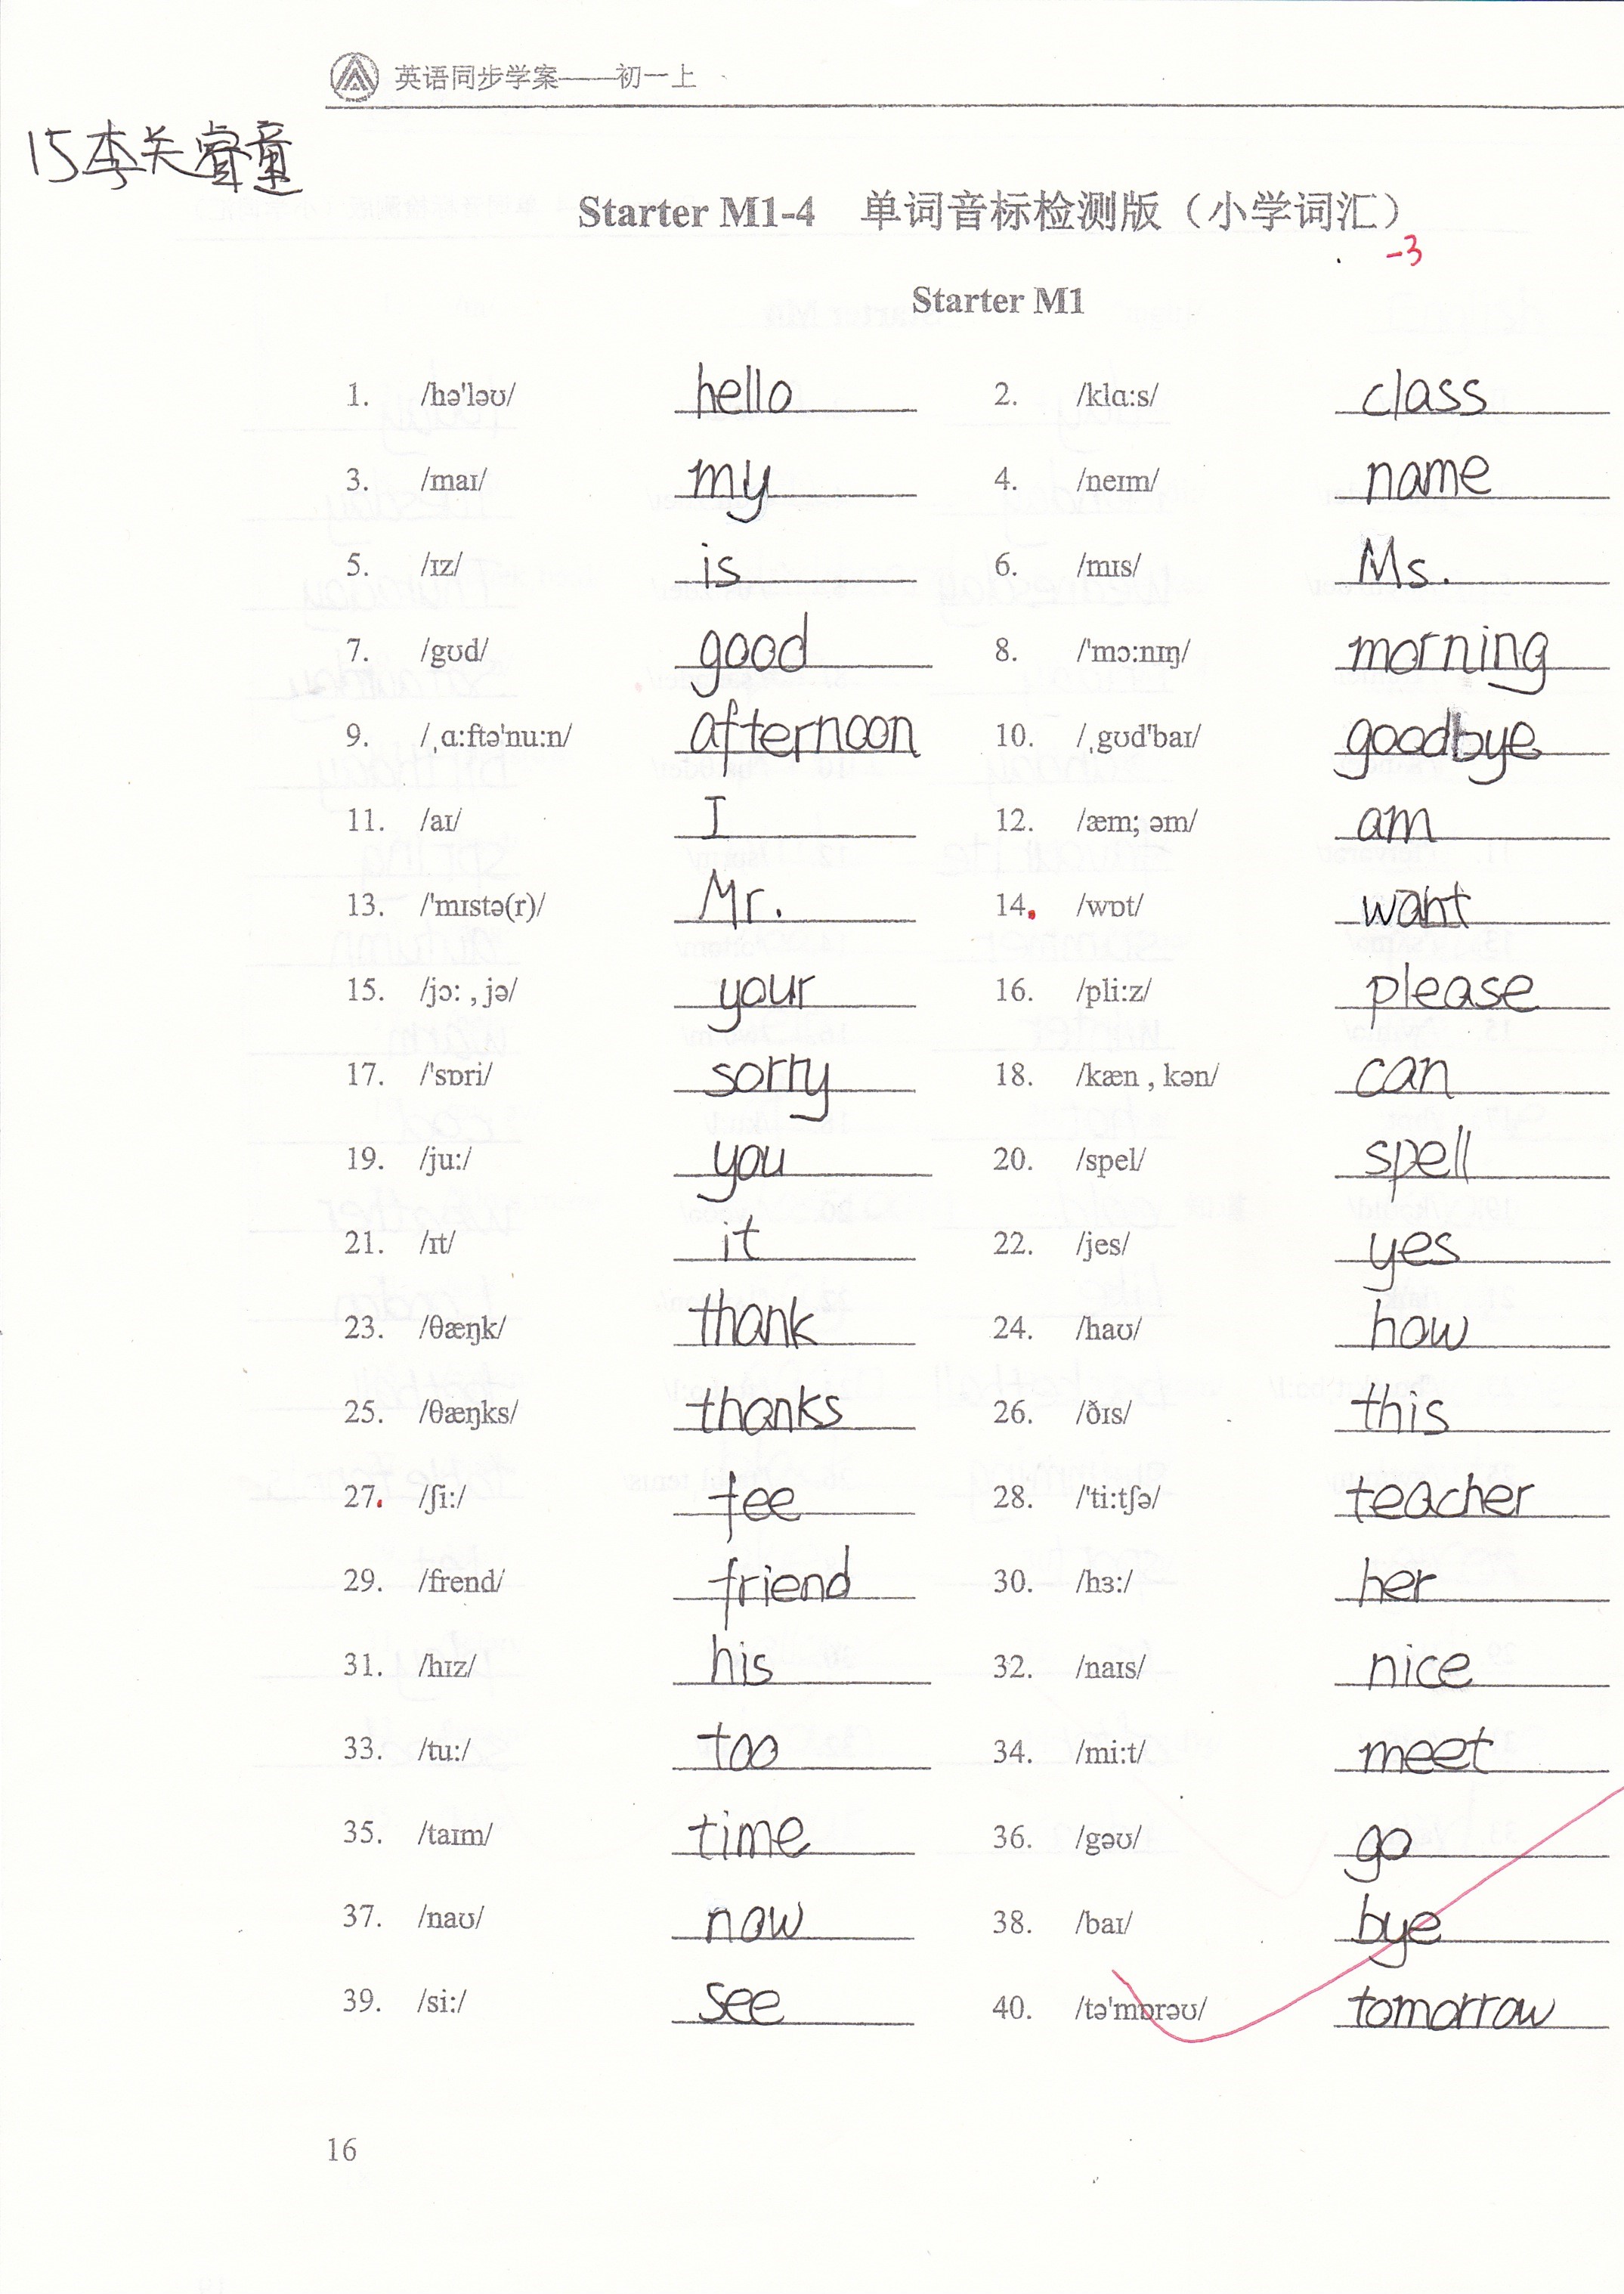 英语同步学案——初一上
15李关睿童
Starter M1-4 单词音标检测版（小学词汇）
-3
Starter M1
1. /hə'ləʊ/ hello 2. /klɑ:s/ class
3. /maɪ/ my 4. /neɪm/ name
5. /ɪz/ is 6. /mɪs/ Ms.
7. /gʊd/ good 8. /'mɔ:nɪŋ/ morning
9. /ˌɑ:ftə'nu:n/ afternoon 10. /ˌgʊd'baɪ/ goodbye
11. /aɪ/ I 12. /æm; əm/ am
13. /'mɪstə(r)/ Mr. 14. /wɒt/ want
15. /jɔ: , jə/ your 16. /pli:z/ please
17. /'sɒri/ sorry 18. /kæn , kən/ can
19. /ju:/ you 20. /spel/ spell
21. /ɪt/ it 22. /jes/ yes
23. /θæŋk/ thank 24. /haʊ/ how
25. /θæŋks/ thanks 26. /ðɪs/ this
27. /ʃi:/ fee 28. /'ti:tʃə/ teacher
29. /frend/ friend 30. /hɜ:/ her
31. /hɪz/ his 32. /naɪs/ nice
33. /tu:/ too 34. /mi:t/ meet
35. /taɪm/ time 36. /gəʊ/ go
37. /naʊ/ now 38. /baɪ/ bye
39. /si:/ see 40. /tə'mɒrəʊ/ tomorrow
16